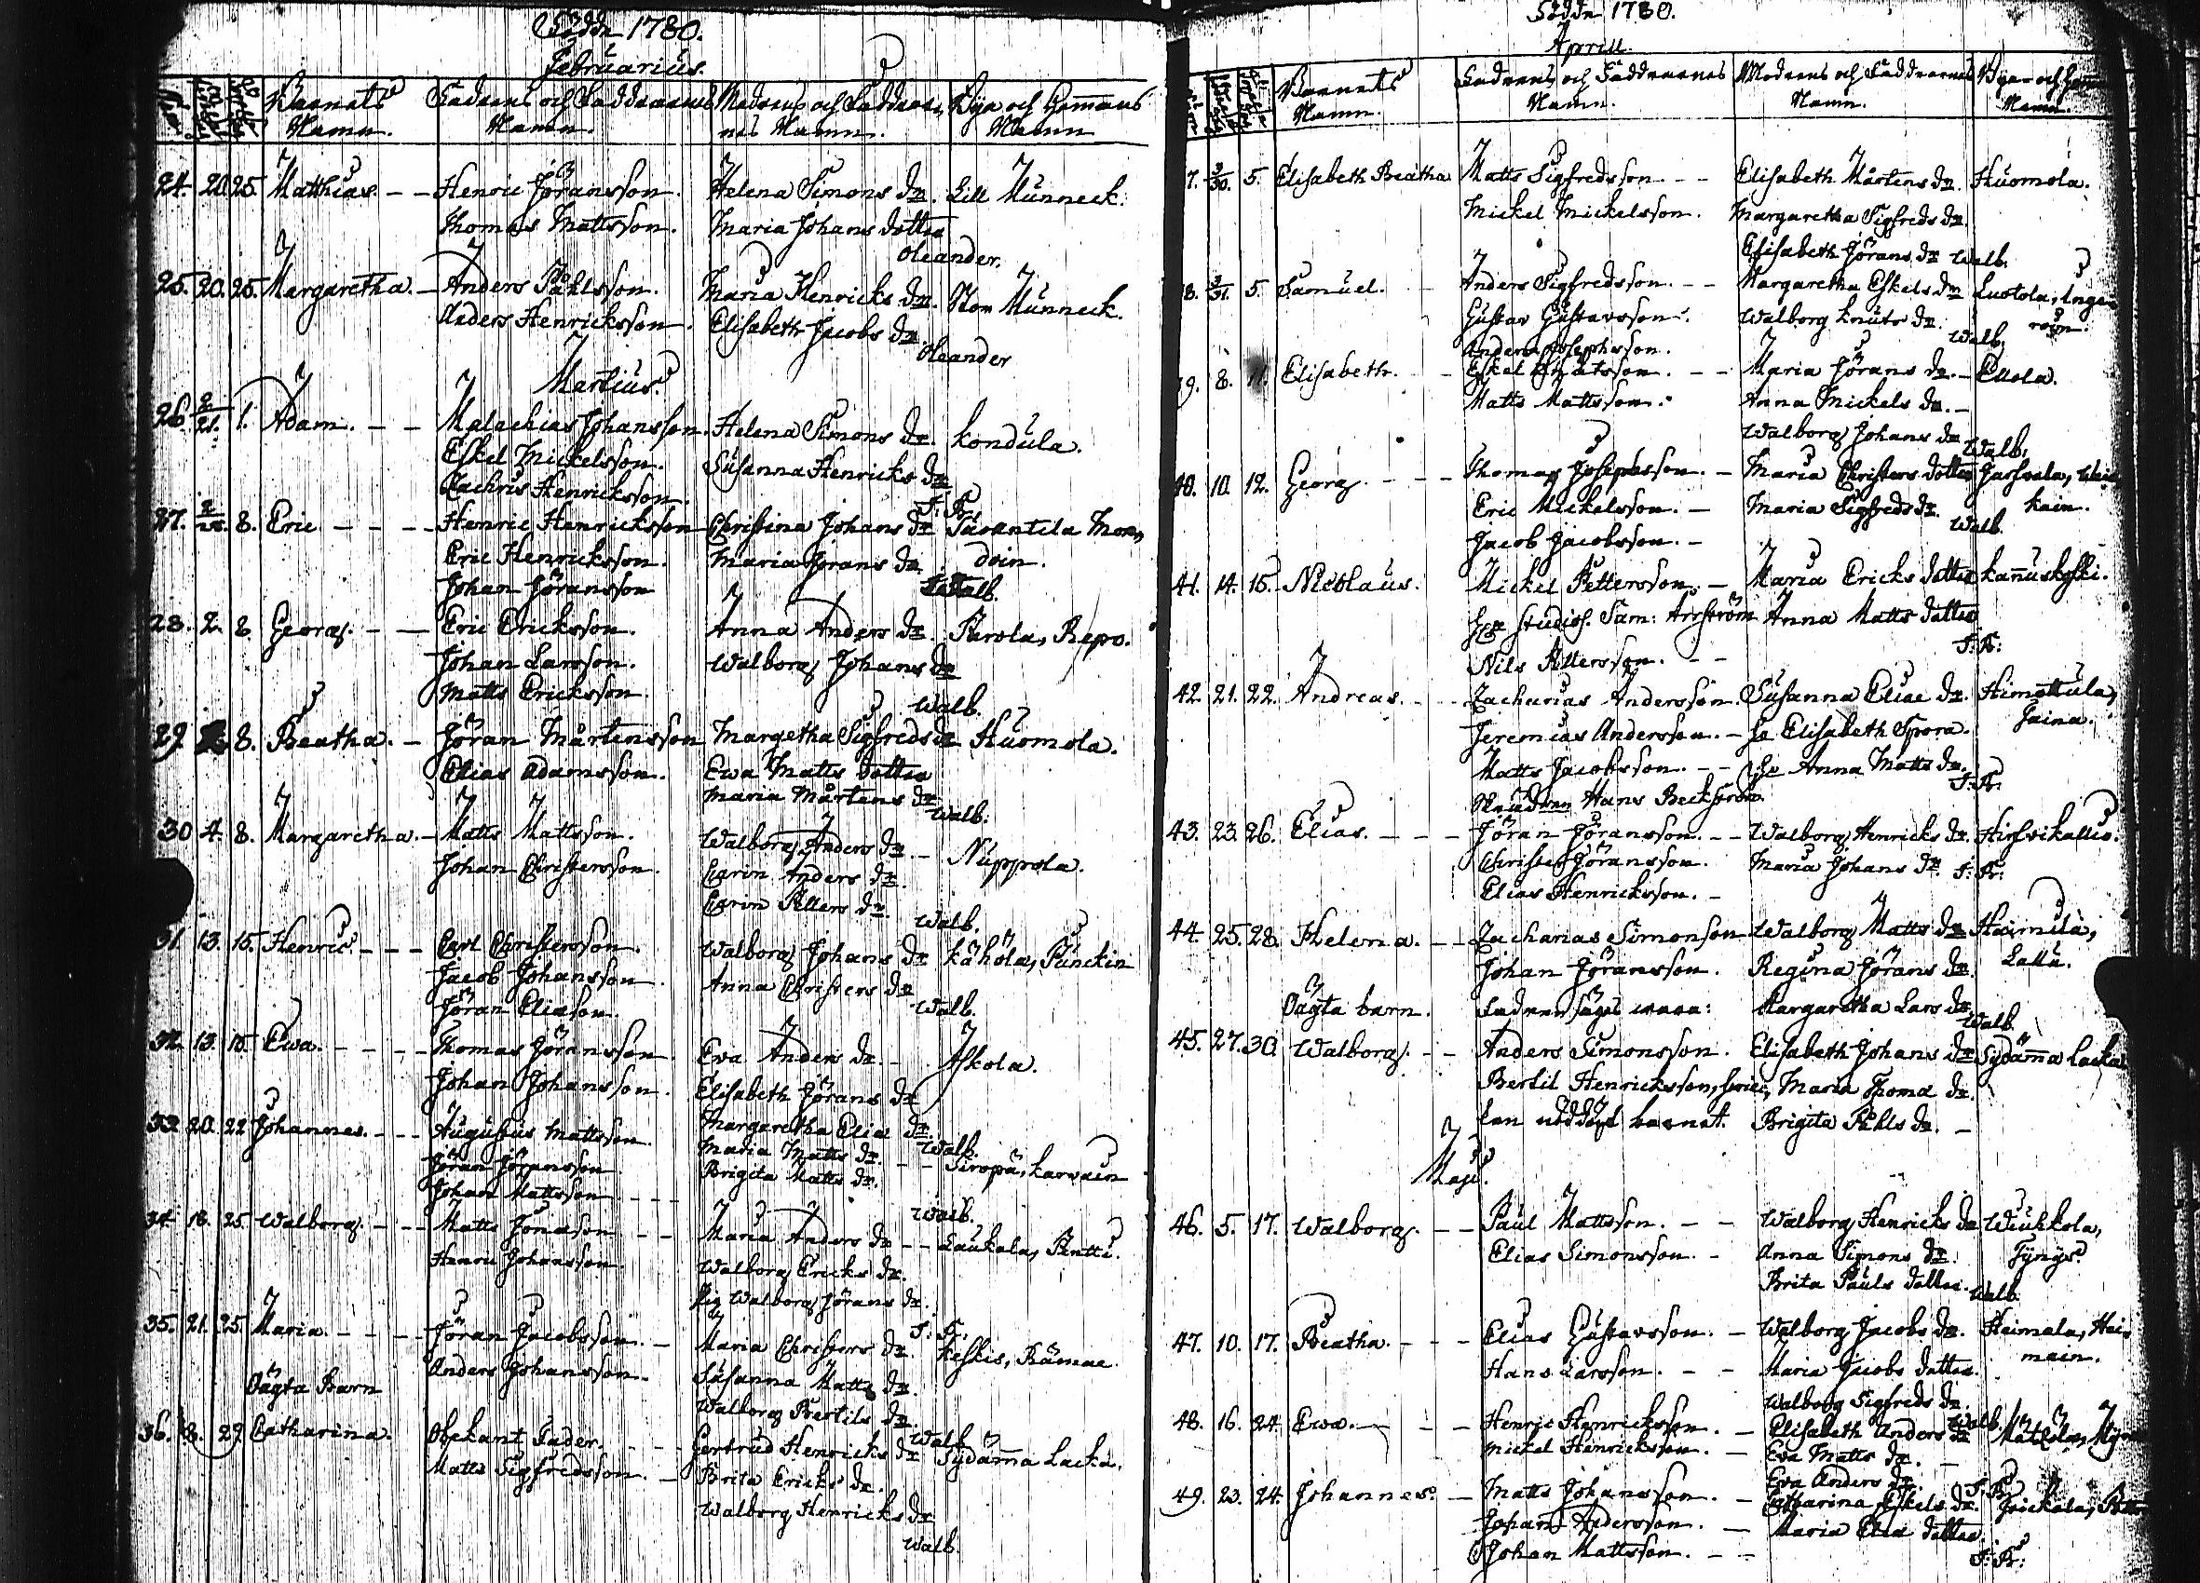 Födde 1780.
Februarius.
Barnets Namn. Fadrens och Faddrarnes Namn. Modrens och Faddrarnes Namn. Bya och Hemmans Namn
24. 20. 25. Matthias. Henric Jöransson. Helena Simons dr. Lill Münneck.
Thomas Mattsson. Maria Johans dotter
Oleander.
25. 20. 25. Margaretha. Anders Påhlsson. Maria Henricks dr. Stor Münneck.
Anders Henricksson. Elisabeth Jacobs dr.
Oleander
Martius.
26. 2/21. 1. Adam. Malachias Johansson. Helena Simons dr. Kondula.
Eskel Mickelsson. Susanna Henricks dr
Zachris Henricksson. F. Fr.
27. 8. Eric Henric Henricksson Christina Johans dr Tavantila
Eric Henricksson. Maria Jörans dr
Johan Jöransson Walb.
28. 2. 8. Georg. Eric Ericksson. Anna Anders dr. Parola, Repo.
Johan Larsson. Walborg Johans dr
Matts Ericksson. Walb.
29. 8. Beatha. Jöran Mårtensson Margetha Sigfreds dr Huomola.
Elias Adamsson. Ewa Matts dotter
Maria Mårtens dr.
Walb.
30 4. 8. Margaretha. Matts Mattsson. Walborg Anders dr Nuppola.
Johan Christersson. Carin Anders dr.
Carin Petters dr.
Walb.
31. 13. 15. Henric Carl Christersson. Walborg Johans dr Kähölä, Punckin
Jacob Johansson. Anna Christers dr
Jöran Eliasson. Walb.
32. 13. 15. Ewa. Thomas Jöransson. Eva Anders dr. Askola.
Johan Johansson. Elisabeth Jörans dr
Margaretha Eliae dr
Walb.
33. 20. 22 Johannes. Augustus Mattsson Maria Matts dr. Siropu, Karvain
Jöran Jöransson Brigita Matts dr.
Johan Mattsson
Walb.
34. 18. 25. Walborg. Matts Jönasson Maria Anders dr Laukala, Pentti.
Henric Johansson. Walborg Ericks dr.
Pig. Walborg Jörans dr.
F. Fr.
35. 21. 25. Maria. Jöran Jacobsson. Maria Christers dr. Keskis, Rämae.
Anders Johansson. Susanna Matts dr.
Walborg Bertils dr.
Walb.
Oägta Barn
36. 18. 29. Catharina. Obekant Fader. Gertrud Henricks dr Sydänma Lacka.
Matts Sigfredsson. Brita Ericks dr.
Walborg Henricks dr
Walb.
Födde 1780.
Aprill.
Barnets Namn. Fadrens och Faddrarnes Namn. Modrens och Faddrarnes Namn. Byar och Namn.
7. 3/30. 5. Elisabeth Beatha Matts Sigfredsson. Elisabeth Mårtens dr. Huomola.
Mickel Mickelsson. Margaretha Sigfreds dr.
Elisabeth Jörans dr Walb.
8. 3/31. 5. Samuel. Anders Sigfredsson. Margaretha Eskels dr Luotola,
Gustav Gustavsson. Walborg Knuts dr.
Anders Josephsson. Walb.
39. 8. Elisabeth. Eskel Mattsson. Maria Jörans dr. Ellola.
Matts Mattsson. Anna Mickels dr.
Walborg Johans dr
Walb.
40. 10. 12. Georg. Thomas Josephsson. Maria Christers dotter
Eric Mickelsson. Maria Sigfreds dr.
Jacob Jacobsson. Walb.
41. 14. 15. Nicolaus. Mickel Pettersson. Maria Ericks dotter Kannuskoski.
Studios. Sam: Arrström Anna Matts dotter
Nils Pettersson. F. Fr.
42. 21. 22. Andreas. Zacharias Andersson. Susanna Eliae dr. Himottula,
Jeremias Andersson. Elisabeth Spora. Jaina.
Matts Jacobsson. Anna Matts dr.
Hans Beckström. F. Fr.
43. 23. 26. Elias. Jöran Jöransson. Walborg Henricks dr. Hirfvikallio.
Christer Jöransson. Maria Johans dr. F. Fr.
Elias Henricksson.
44. 25. 28. Helena. Zacharias Simonson Walborg Matts dr Haimila,
Johan Jöransson. Regina Jörans dr. Lallu.
Margaretha Lars dr.
Walb.
Oägta barn. Fadren säges wara:
45. 27. 30. Walborg. Anders Simonsson. Elisabeth Johans dr Sydänma Lacka
Bertil Henricksson, Maria Thomae dr.
barnet. Brigita Påhls dr.
Maji.
46. 5. 17. Walborg. Paul Mattsson. Walborg Henricks dr Wiukkola,
Elias Simonsson. Anna Simons dr. Tynys.
Brita Pauls dotter. Walb.
47. 10. 17. Beatha. Elias Gustavsson. Walborg Jacobs dr. Heimala,
Hans Larsson. Maria Jacobs dotter. main.
Walborg Sigfreds dr.
Walb.
48. 16. 24 Ewa. Henric Henricksson. Elisabeth Anders dr
Mickel Henricksson. Eva Matts dr.
Eva Anders dr.
F. Fr.
49. 23. 24. Johannes. Matts Johansson. Catharina Eskels dr.
Johan Andersson. Maria Eliae dotter.
Johan Mattsson. F. Fr: